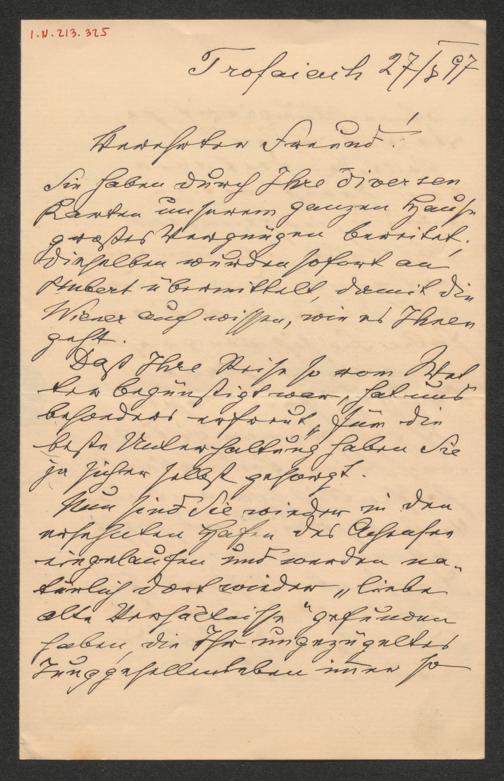 I.N.213.325
Trofaiach 27/8 97
Verehrter Freund!
Sie haben durch Ihre diversen
Karten unserem ganzen Hause
großes Vergnügen bereitet;
dieselben wurden sofort an
Hubert übermittelt, damit die
Wiener auch wissen, wie es Ihnen
geht.
Daß Ihre Reise so vom Wet
ter begünstigt war, hat uns
besonders erfreut, für die
beste Unterhaltung haben Sie
ja sicher selbst gesorgt.
Nun sind Sie wieder in den
ersehnten Hafen des
eingelaufen und werden na-
türlich dort wieder „liebe
alte Verhältnisse" gefunden
haben, die Ihr ungezügeltes
Junggesellenleben imer so